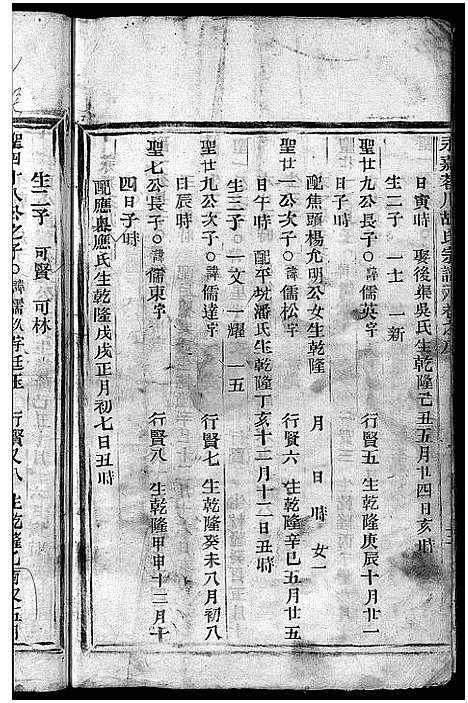 永嘉蒼川胡氏宗譜
日寅時 娶後渠吳氏生乾隆己丑五月廿四日亥時
生二子 一士 一新
聖廿九公長子○諱儒英字 行賢五 生乾隆庚辰十月廿一
日子時
配焦頭楊允明公女生乾隆 月 日 時 女一
聖廿一公次子○諱儒松字 行賢六 生乾隆辛巳五月廿五
日午時 配平坑潘氏生乾隆丁亥十二月十二日丑時
生三子 一文 一耀 一五
聖廿九公次子○諱儒達字 行賢七 生乾隆癸未八月初八
日辰時
聖七公長子○諱儒東字 行賢八 生乾隆甲申十二月十
四日子時
配應嶴應氏生乾隆戊戌正月初七日丑時
生二子 可賢 可林
聖四十八公之子○諱儒 字廷珏 行賢又八 生乾隆乙酉又二月